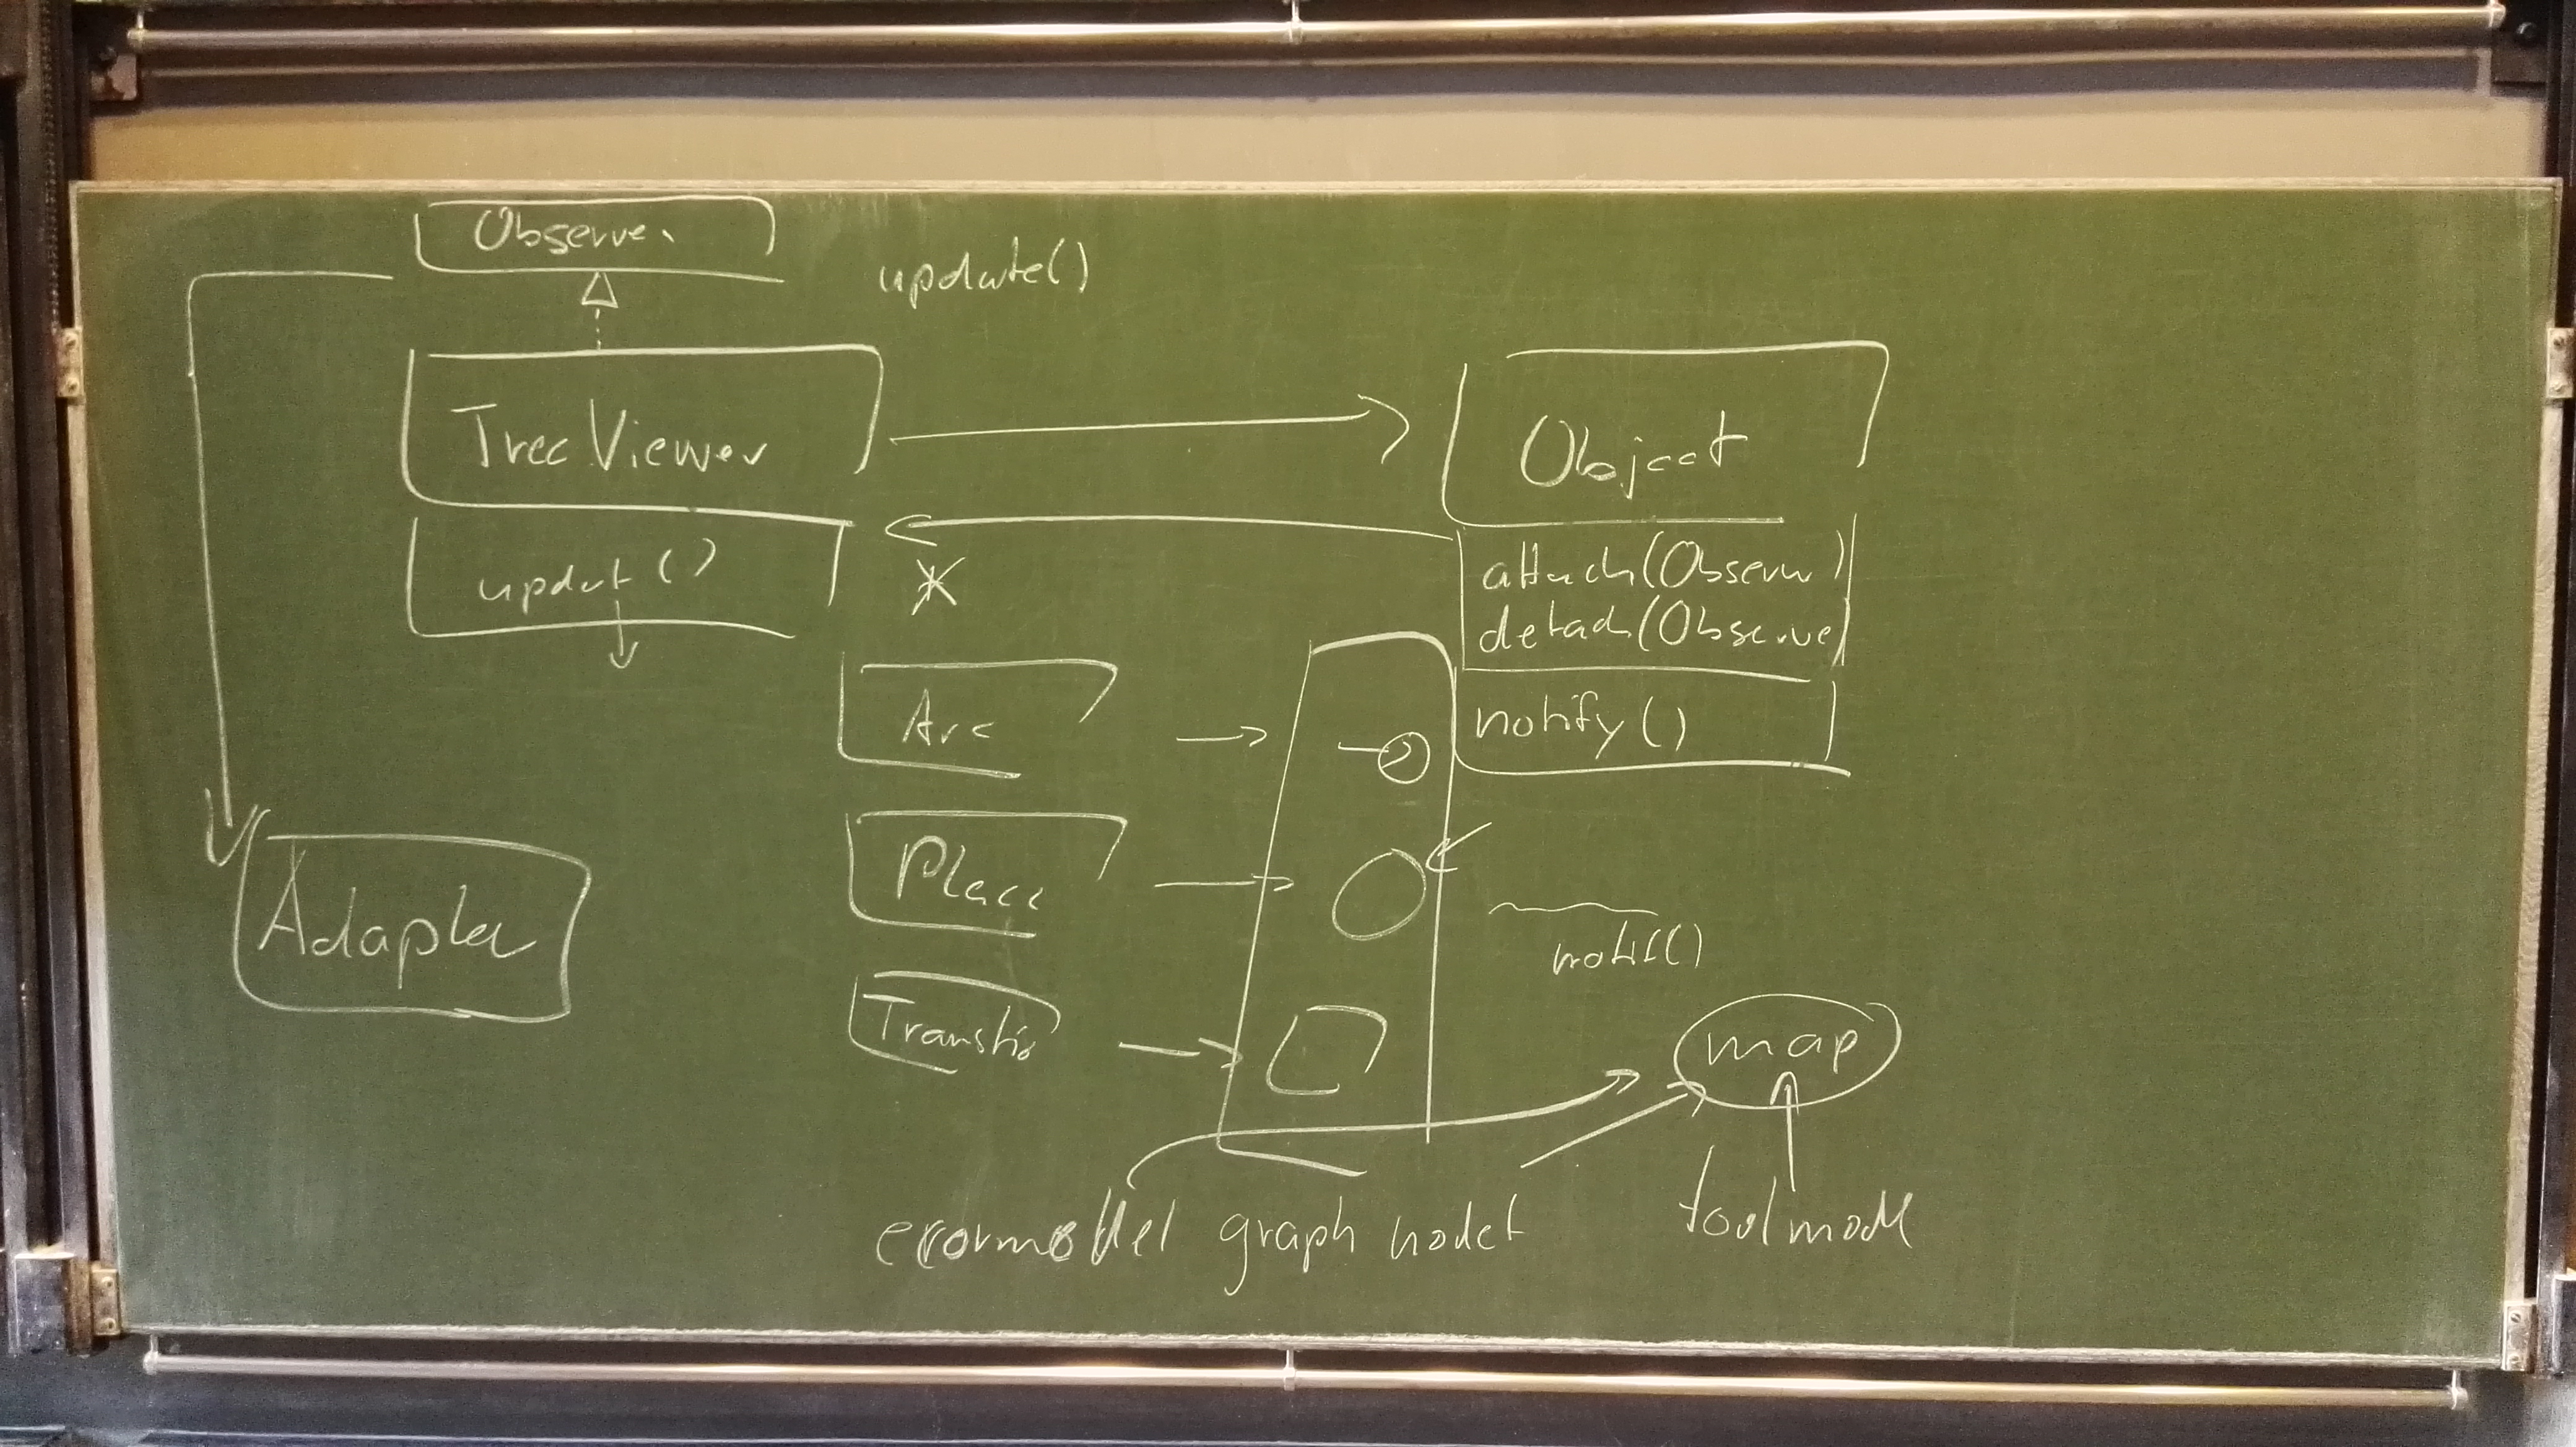 Observer
update()
Tree Viewer
Object
updat()
*
attach(Observer)
detach(Observe)
notify()
Arc
Place
Transitio
Adapter
notif()
map
graph model
toolmodel